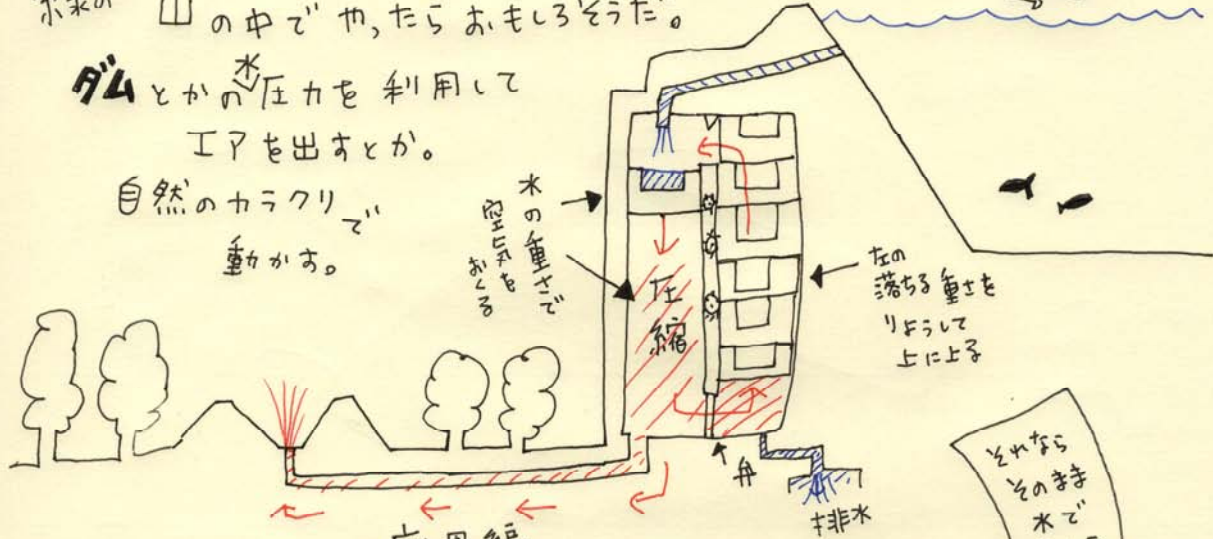 山の中でやったらおもしろそうだ。
ダムとかの水圧力を利用して
エアを出すとか。
自然のカラクリで
動かす。
水の重さで
空気を
おくる
圧
縮
左の
落ちる重さを
りようして
上に上る
弁
排水
それなら
そのまま
水で